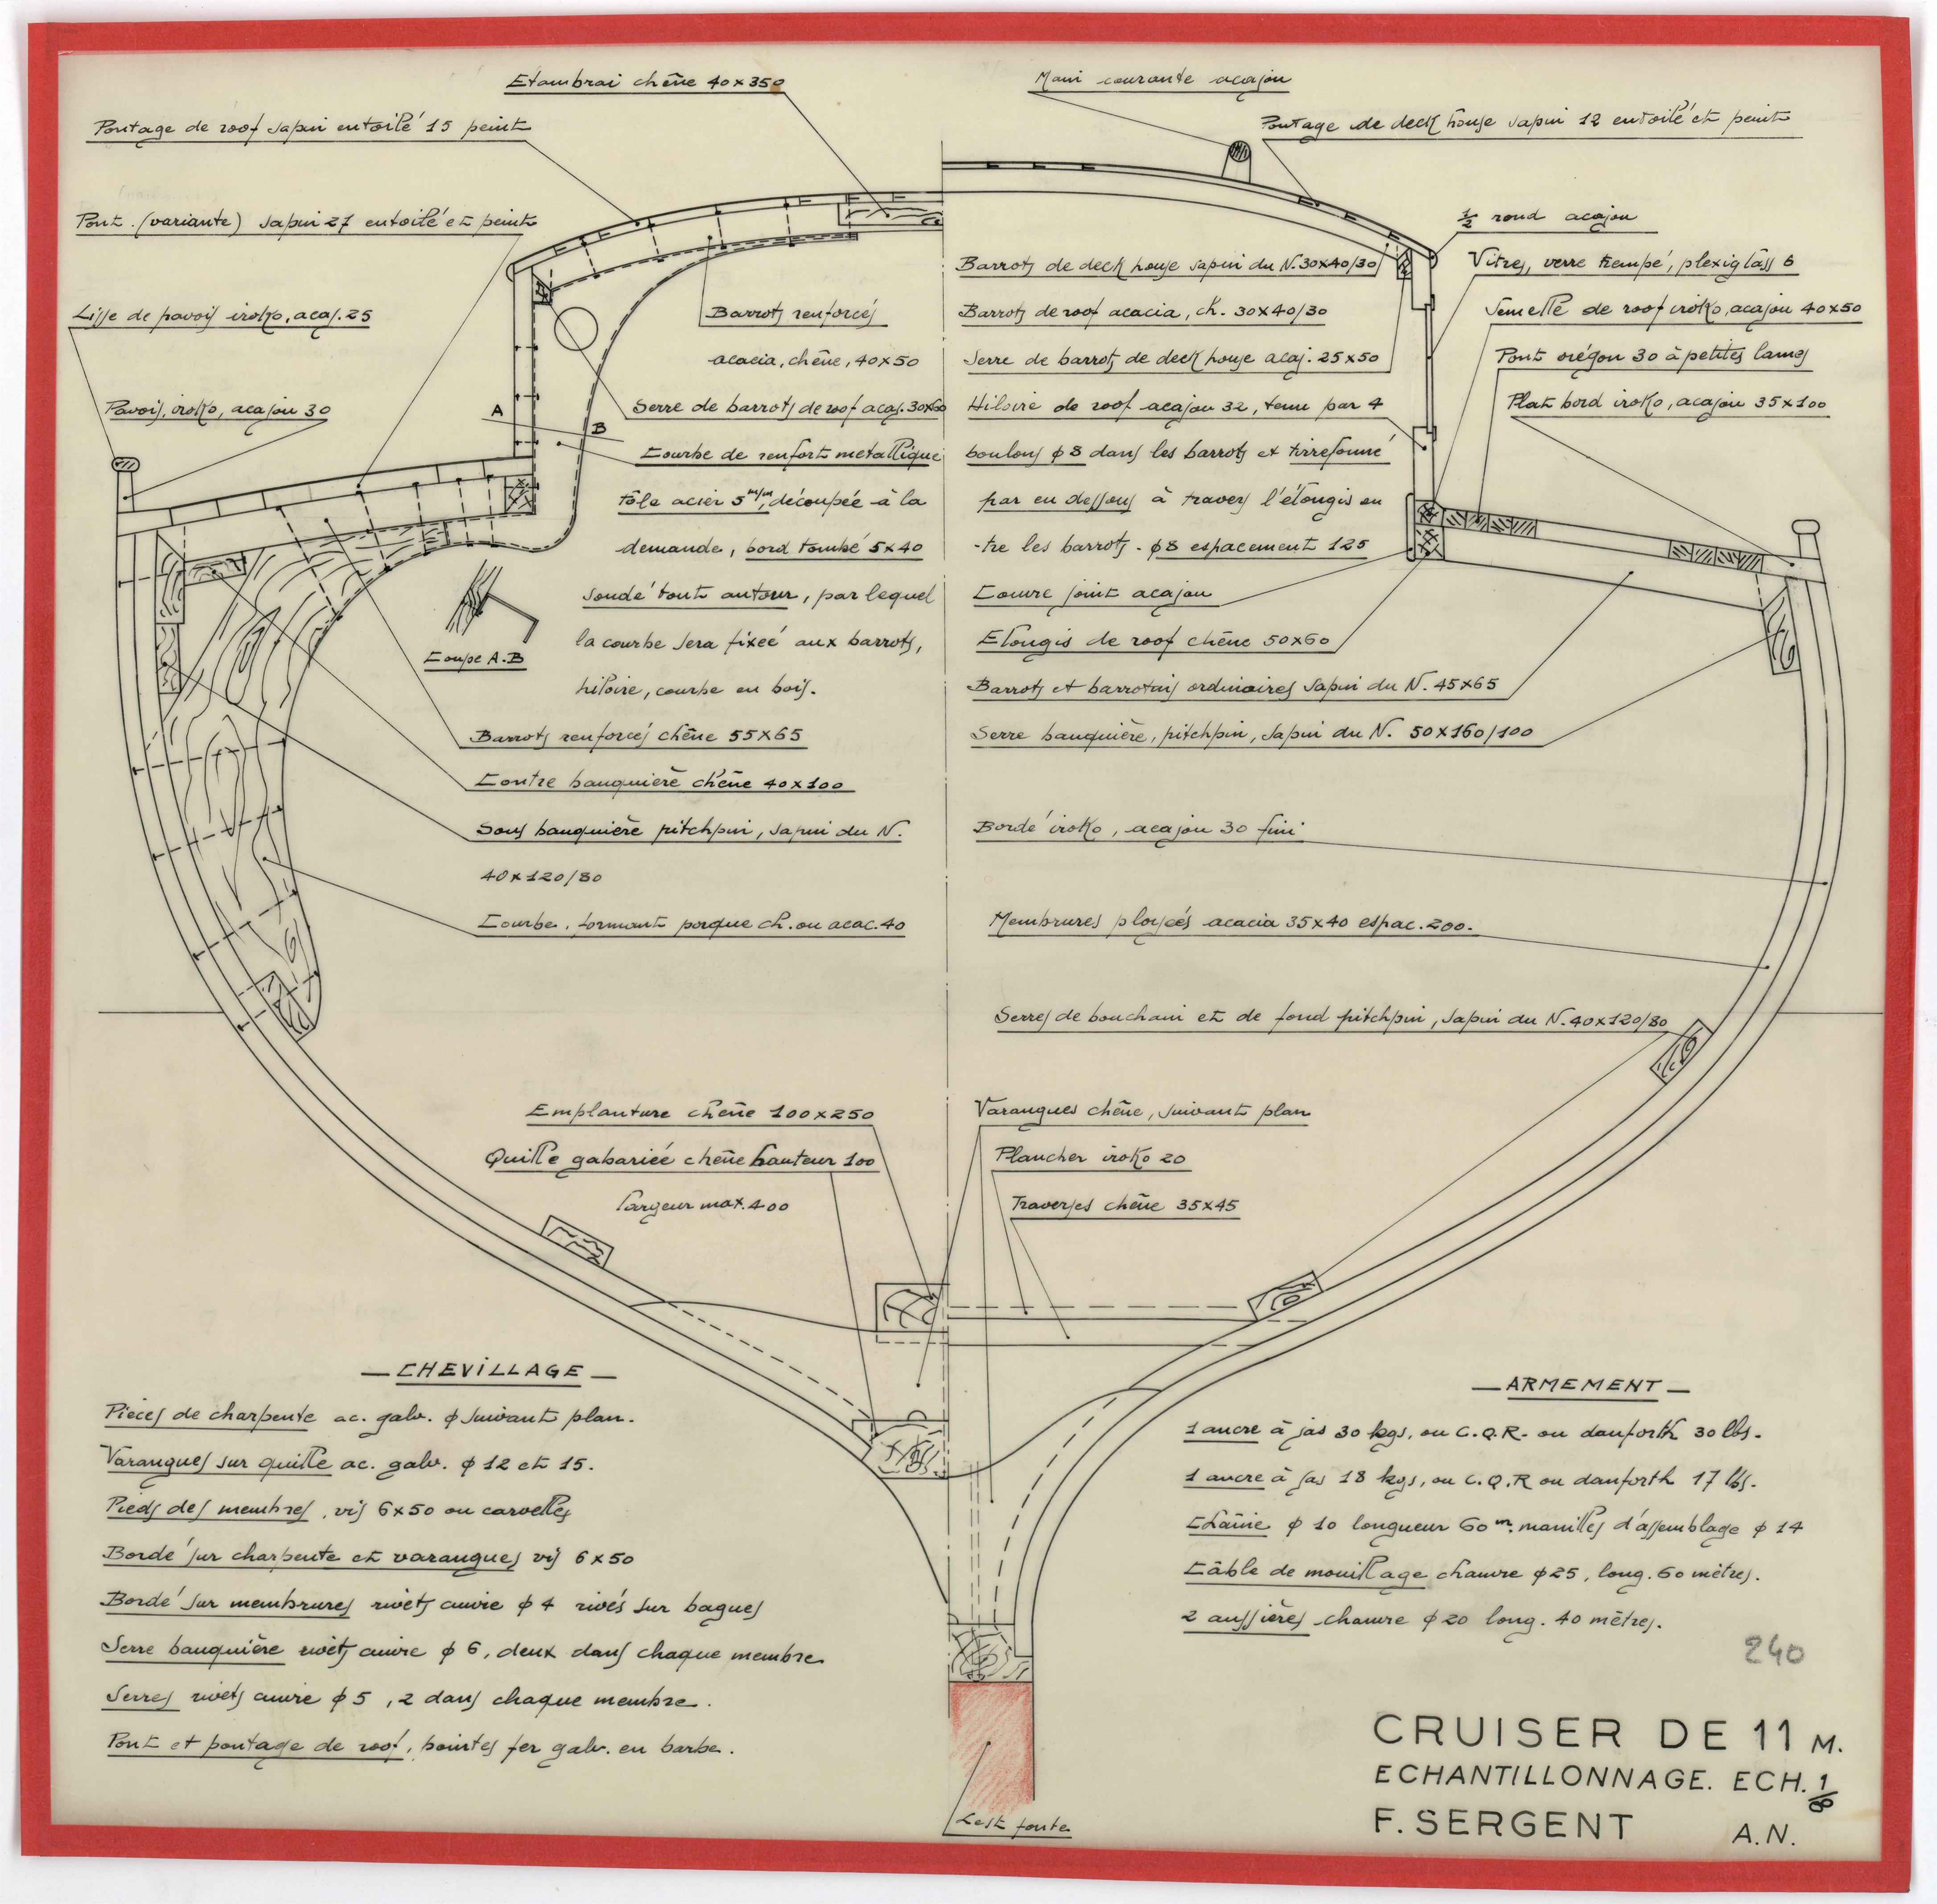 Etambrai chêne 40x350
Main courante acajou
Pontage de roof sapin entoilé 15 peint
Pontage de deck house sapin 12 entoilé et peint
Pont (variante) sapin 27 entoilé et peint
1/2 rond acajou
Vitres, verre trempé, plexiglass 6
Lisse de pavois iroko, acaj. 25
Semelle de roof iroko, acajou 40x50
Pont orégon 30 à petites lames
Pavois, iroko, acajou 30
Plat bord iroko, acajou 35x100
Barrots renforcés
acacia, chêne, 40x50
Serre de barrots de roof acaj. 30x60
A
B
Courbe de renfort metallique
tôle acier 5 m/m, découpée à la
demande, bord tombé 5x40
soudé tout autour, par lequel
la courbe sera fixeé aux barrots,
hiloire, courbe en bois.
Coupe A.B
Barrots renforcés chêne 55x65
Contre bauquière chêne 40x100
Sous bauquière pitchpin, sapin du N.
40x120/80
Courbe, formant porque ch. ou acac. 40
Barrots de deck house sapin du N. 30x40/30
Barrots de roof acacia, ch. 30x40/30
Serre de barrots de deck house acaj. 25x50
Hiloire de roof acajou 32, tenu par 4
boulons φ 8 dans les barrots et tirefonné
par en dessous à travers l'élongis en
-tre les barrots. φ8 espacement 125
Couvre joint acajou
Elongis de roof chêne 50x60
Barrots et barrotins ordinaires sapin du N. 45x65
Serre bauquière, pitchpin, sapin du N. 50x160/100
Bordé iroko, acajou 30 fini
Membrures ployéés acacia 35x40 espac. 200.
Serres de bouchain et de fond pitchpin, sapin du N. 40x120/80
Emplanture chêne 100x250
Quille gabariée chêne hauteur 100
largeur max. 400
Varangues chêne, suivant plan
Plancher iroko 20
Traverses chêne 35x45
— CHEVILLAGE —
Pièces de charpente ac. galv. φ suivant plan.
Varangues sur quille ac. galv. φ 12 et 15.
Pieds des membres, vis 6x50 ou carvelles
Bordé sur charpente et varangues vis 6x50
Bordé sur membrures rivets cuivre φ 4 rivés sur bagues
Serre bauquière rivets cuivre φ 6, deux dans chaque membre
Serres rivets cuivre φ 5, 2 dans chaque membre.
Pont et pontage de roof, pointes fer galv. en barbe.
— ARMEMENT —
1 ancre à jas 30 kgs, ou C.Q.R. ou danforth 30 lbs.
1 ancre à jas 18 kgs, ou C.Q.R ou danforth 17 lbs.
Chaîne φ 10 longueur 60 m. manilles d'assemblage φ 14
Câble de mouillage chanvre φ25, long. 60 mètres.
2 aussières chanvre φ 20 long. 40 mètres.
240
Lest fonte
CRUISER DE 11 M.
ECHANTILLONNAGE. ECH. 1/8
F. SERGENT A.N.